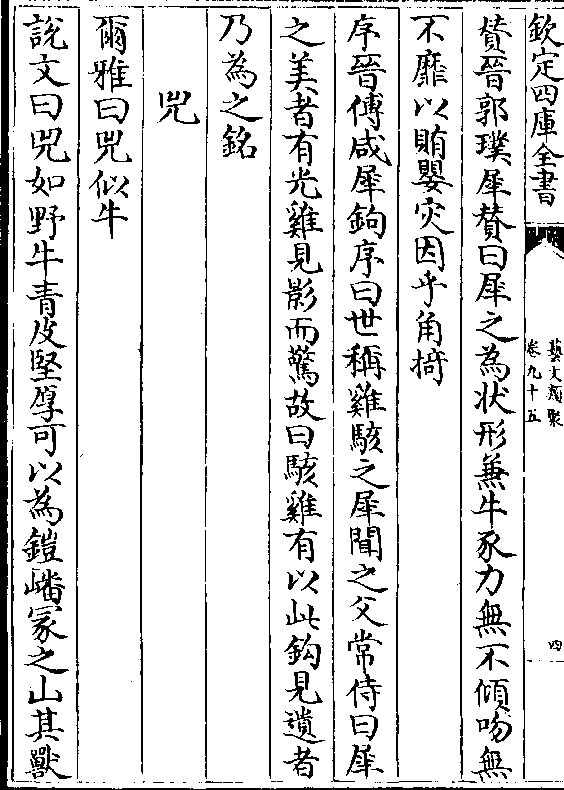 欽定四庫全書
藝文類聚
卷九十五
四
贊晉郭璞犀贊曰犀之為狀形兼牛豕力無不傾吻無
不靡以賄嬰灾因乎角掎
序晉傅咸犀鉤序曰世稱雞駭之犀聞之父常侍曰犀
之美者有光雞見影而驚故曰駭雞有以此鈎見遺者
乃為之銘
兕
爾雅曰兕似牛
說文曰兕如野牛青皮堅厚可以為鎧嶓冢之山其獸